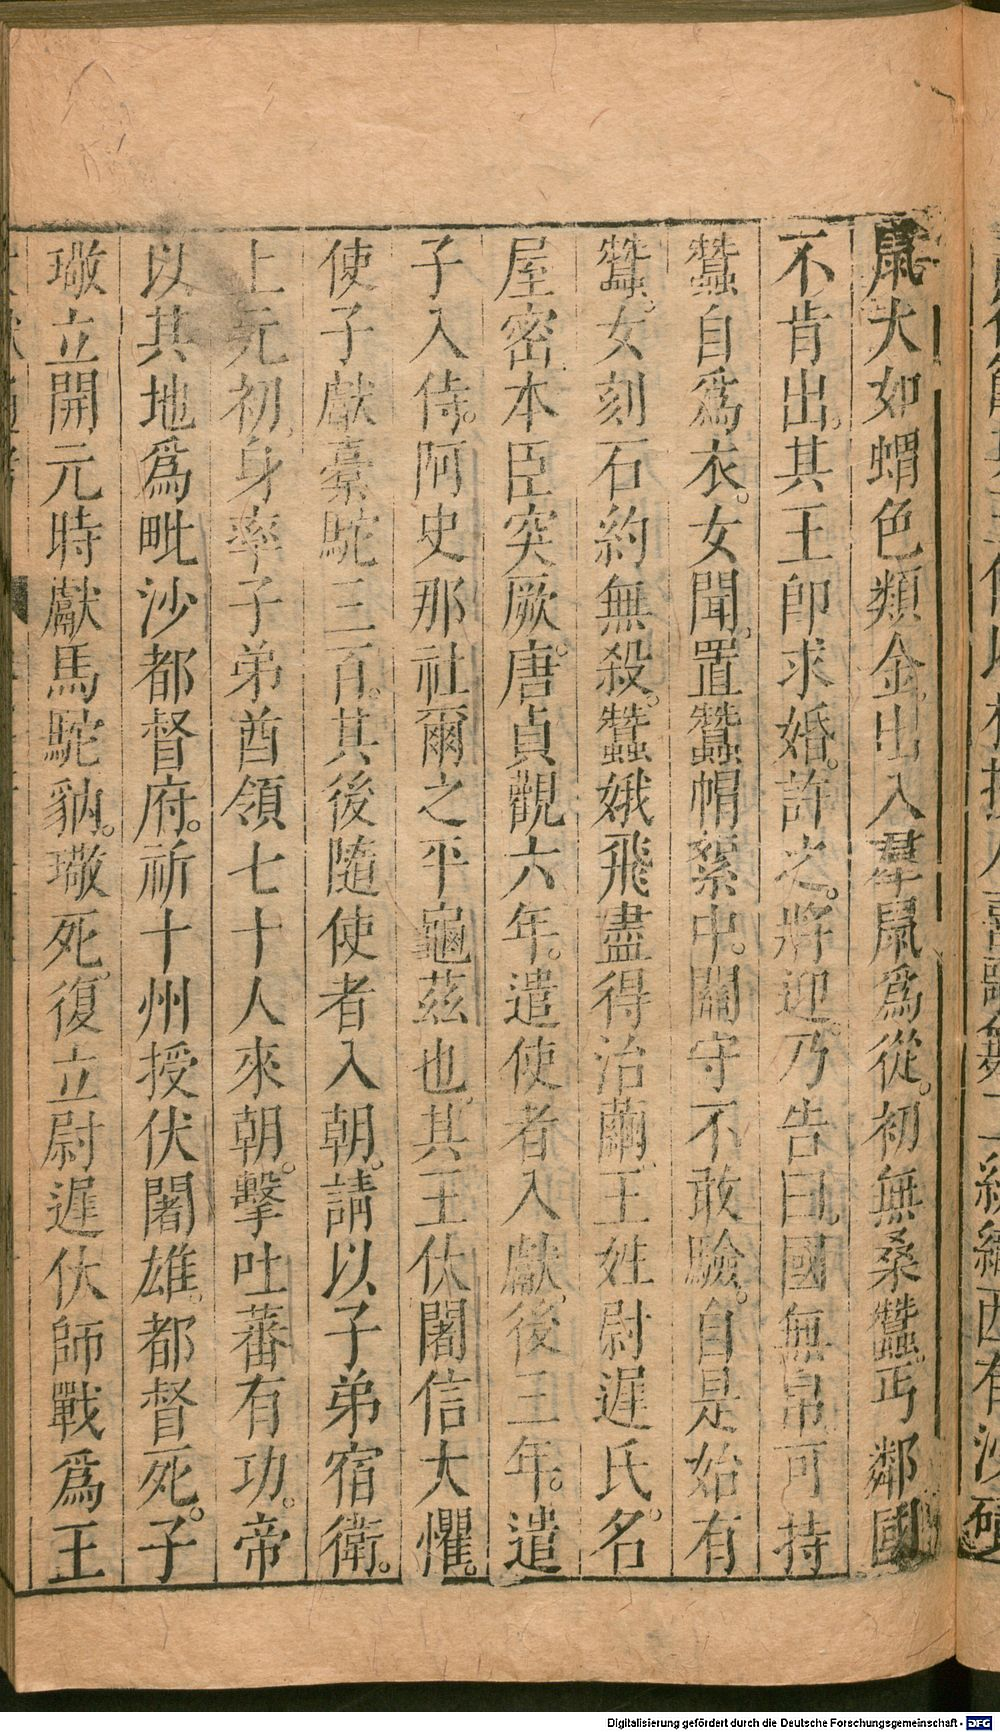 鼠大如蝟色類金出入羣鼠爲從初無桑蠶丐鄰國
不肯出其王卽求婚許之將迎乃告曰國無帛可持
蠶自爲衣女聞置蠶帽絮中關守不敢驗自是始有
蠶女刻石約無殺蠶娥飛盡得治繭王姓尉遲氏名
屋密本臣突厥唐貞觀六年遣使者入獻後三年遣
子入侍阿史那社爾之平龜茲也其王伏闍信大懼
使子獻橐駝三百其後隨使者入朝請以子弟宿衛
上元初身率子弟酋領七十人來朝擊吐蕃有功帝
以其地爲毗沙都督府祈十州授伏闍雄都督死子
璥立開元時獻馬駝豽璥死復立尉遲伏師戰爲王
Digitalisierung gefördert durch die Deutsche Forschungsgemeinschaft - DFG